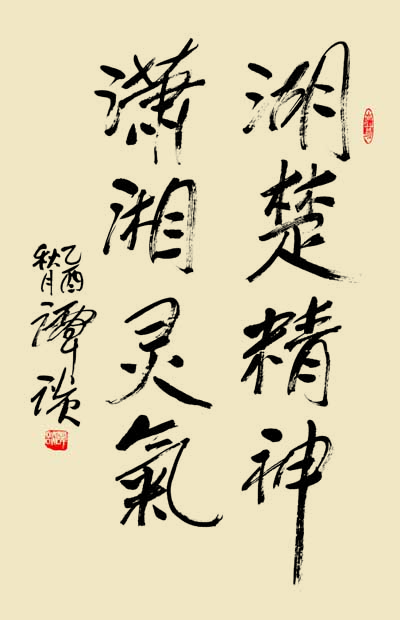 湖楚精神
潇湘灵氣
乙酉
秋月
谭谈